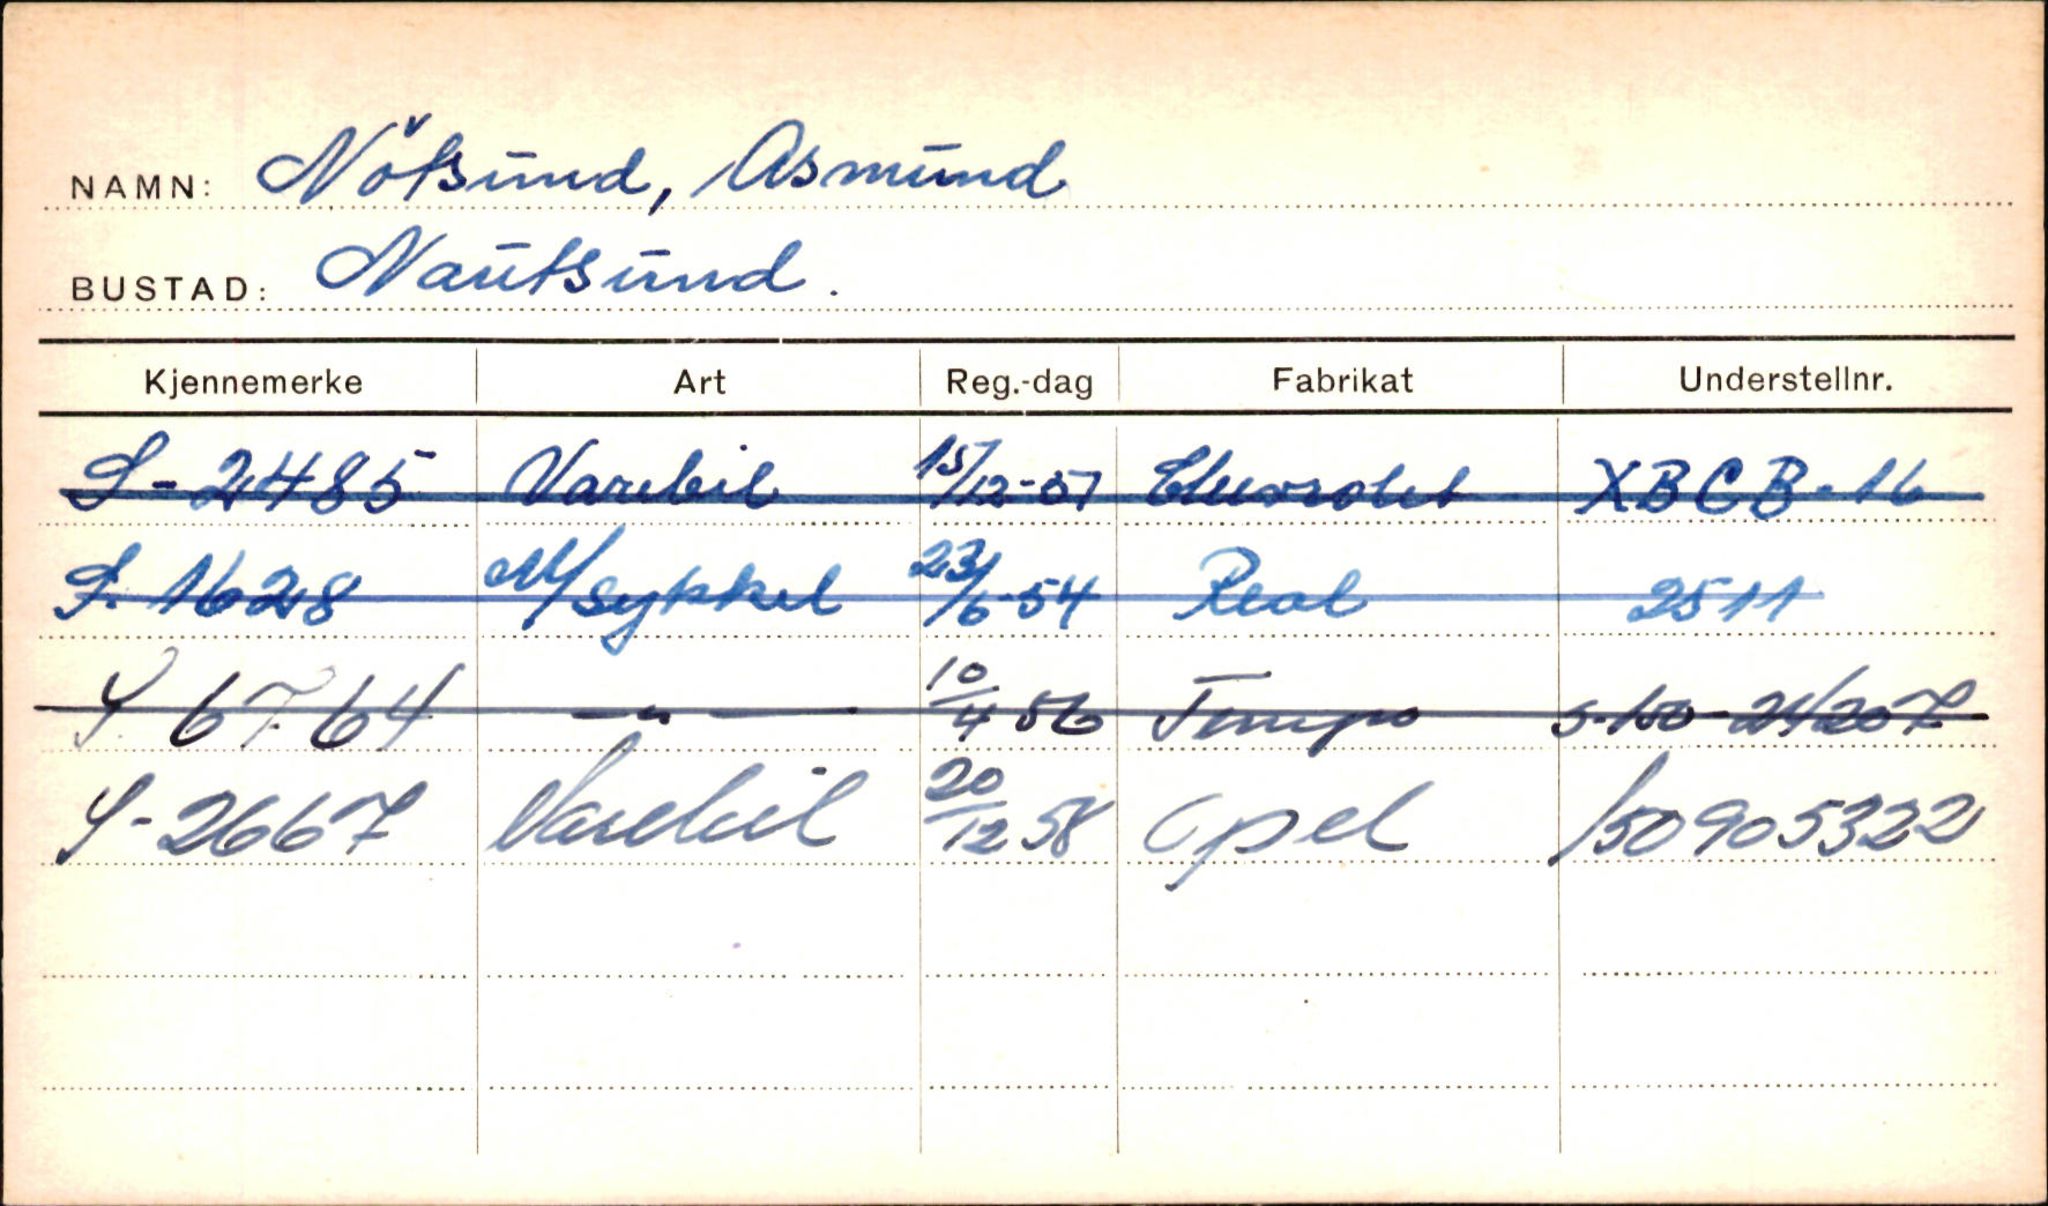 NAMN: Nötsund, Asmund
BUSTAD: Nautsund.
Kjennemerke Art Reg.-dag Fabrikat Understellnr.
S-2485 Varebil 15/12-57 Chevrolet XBCB-16
S-1628 M/sykkel 23/6-54 Real 2511
S 6764 —"— 10/4 56 Tempo S-150-24207
S-2667 Varebil 20/12 58 Opel 150905322